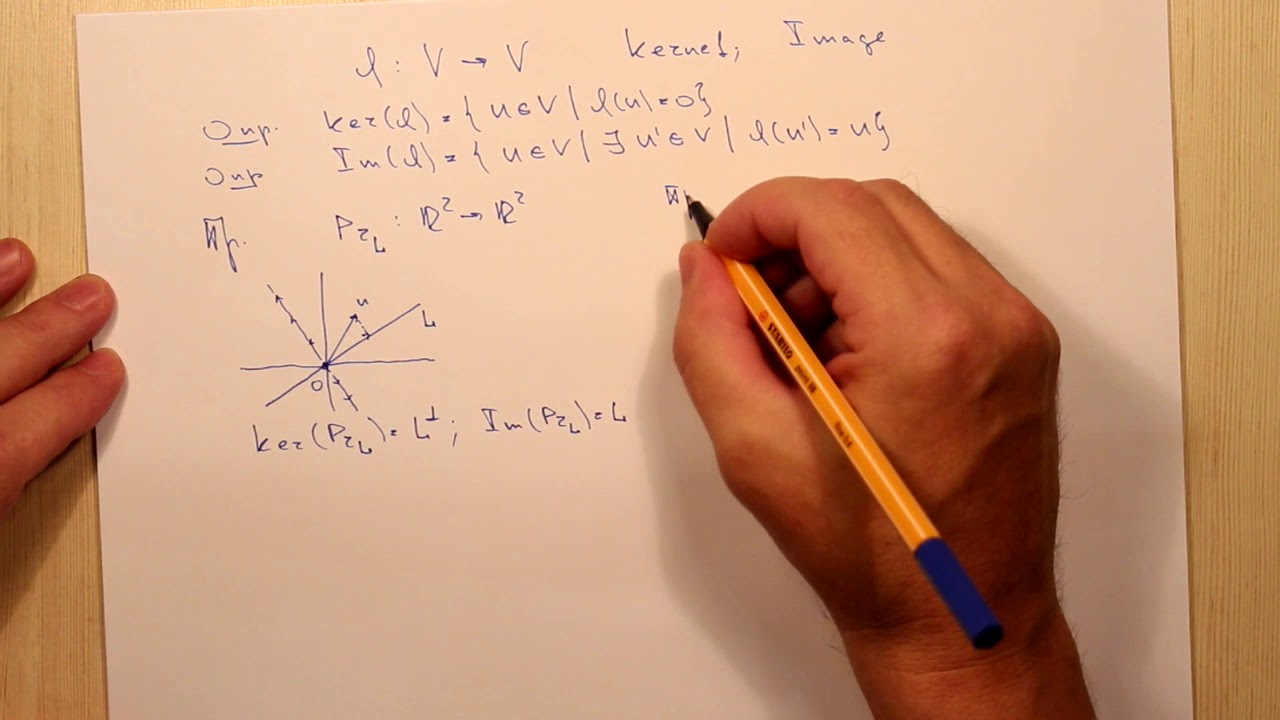 l : V → V    kernel; Image
Опр. ker(l) = { u ∈ V | l(u) = 0 }
Опр Im(l) = { u ∈ V | ∃ u' ∈ V | l(u') = u }
Пр. Pr_L : ℝ² → ℝ²
u
L
0
ker(Pr_L) = L^⊥ ; Im(Pr_L) = L
STABILO